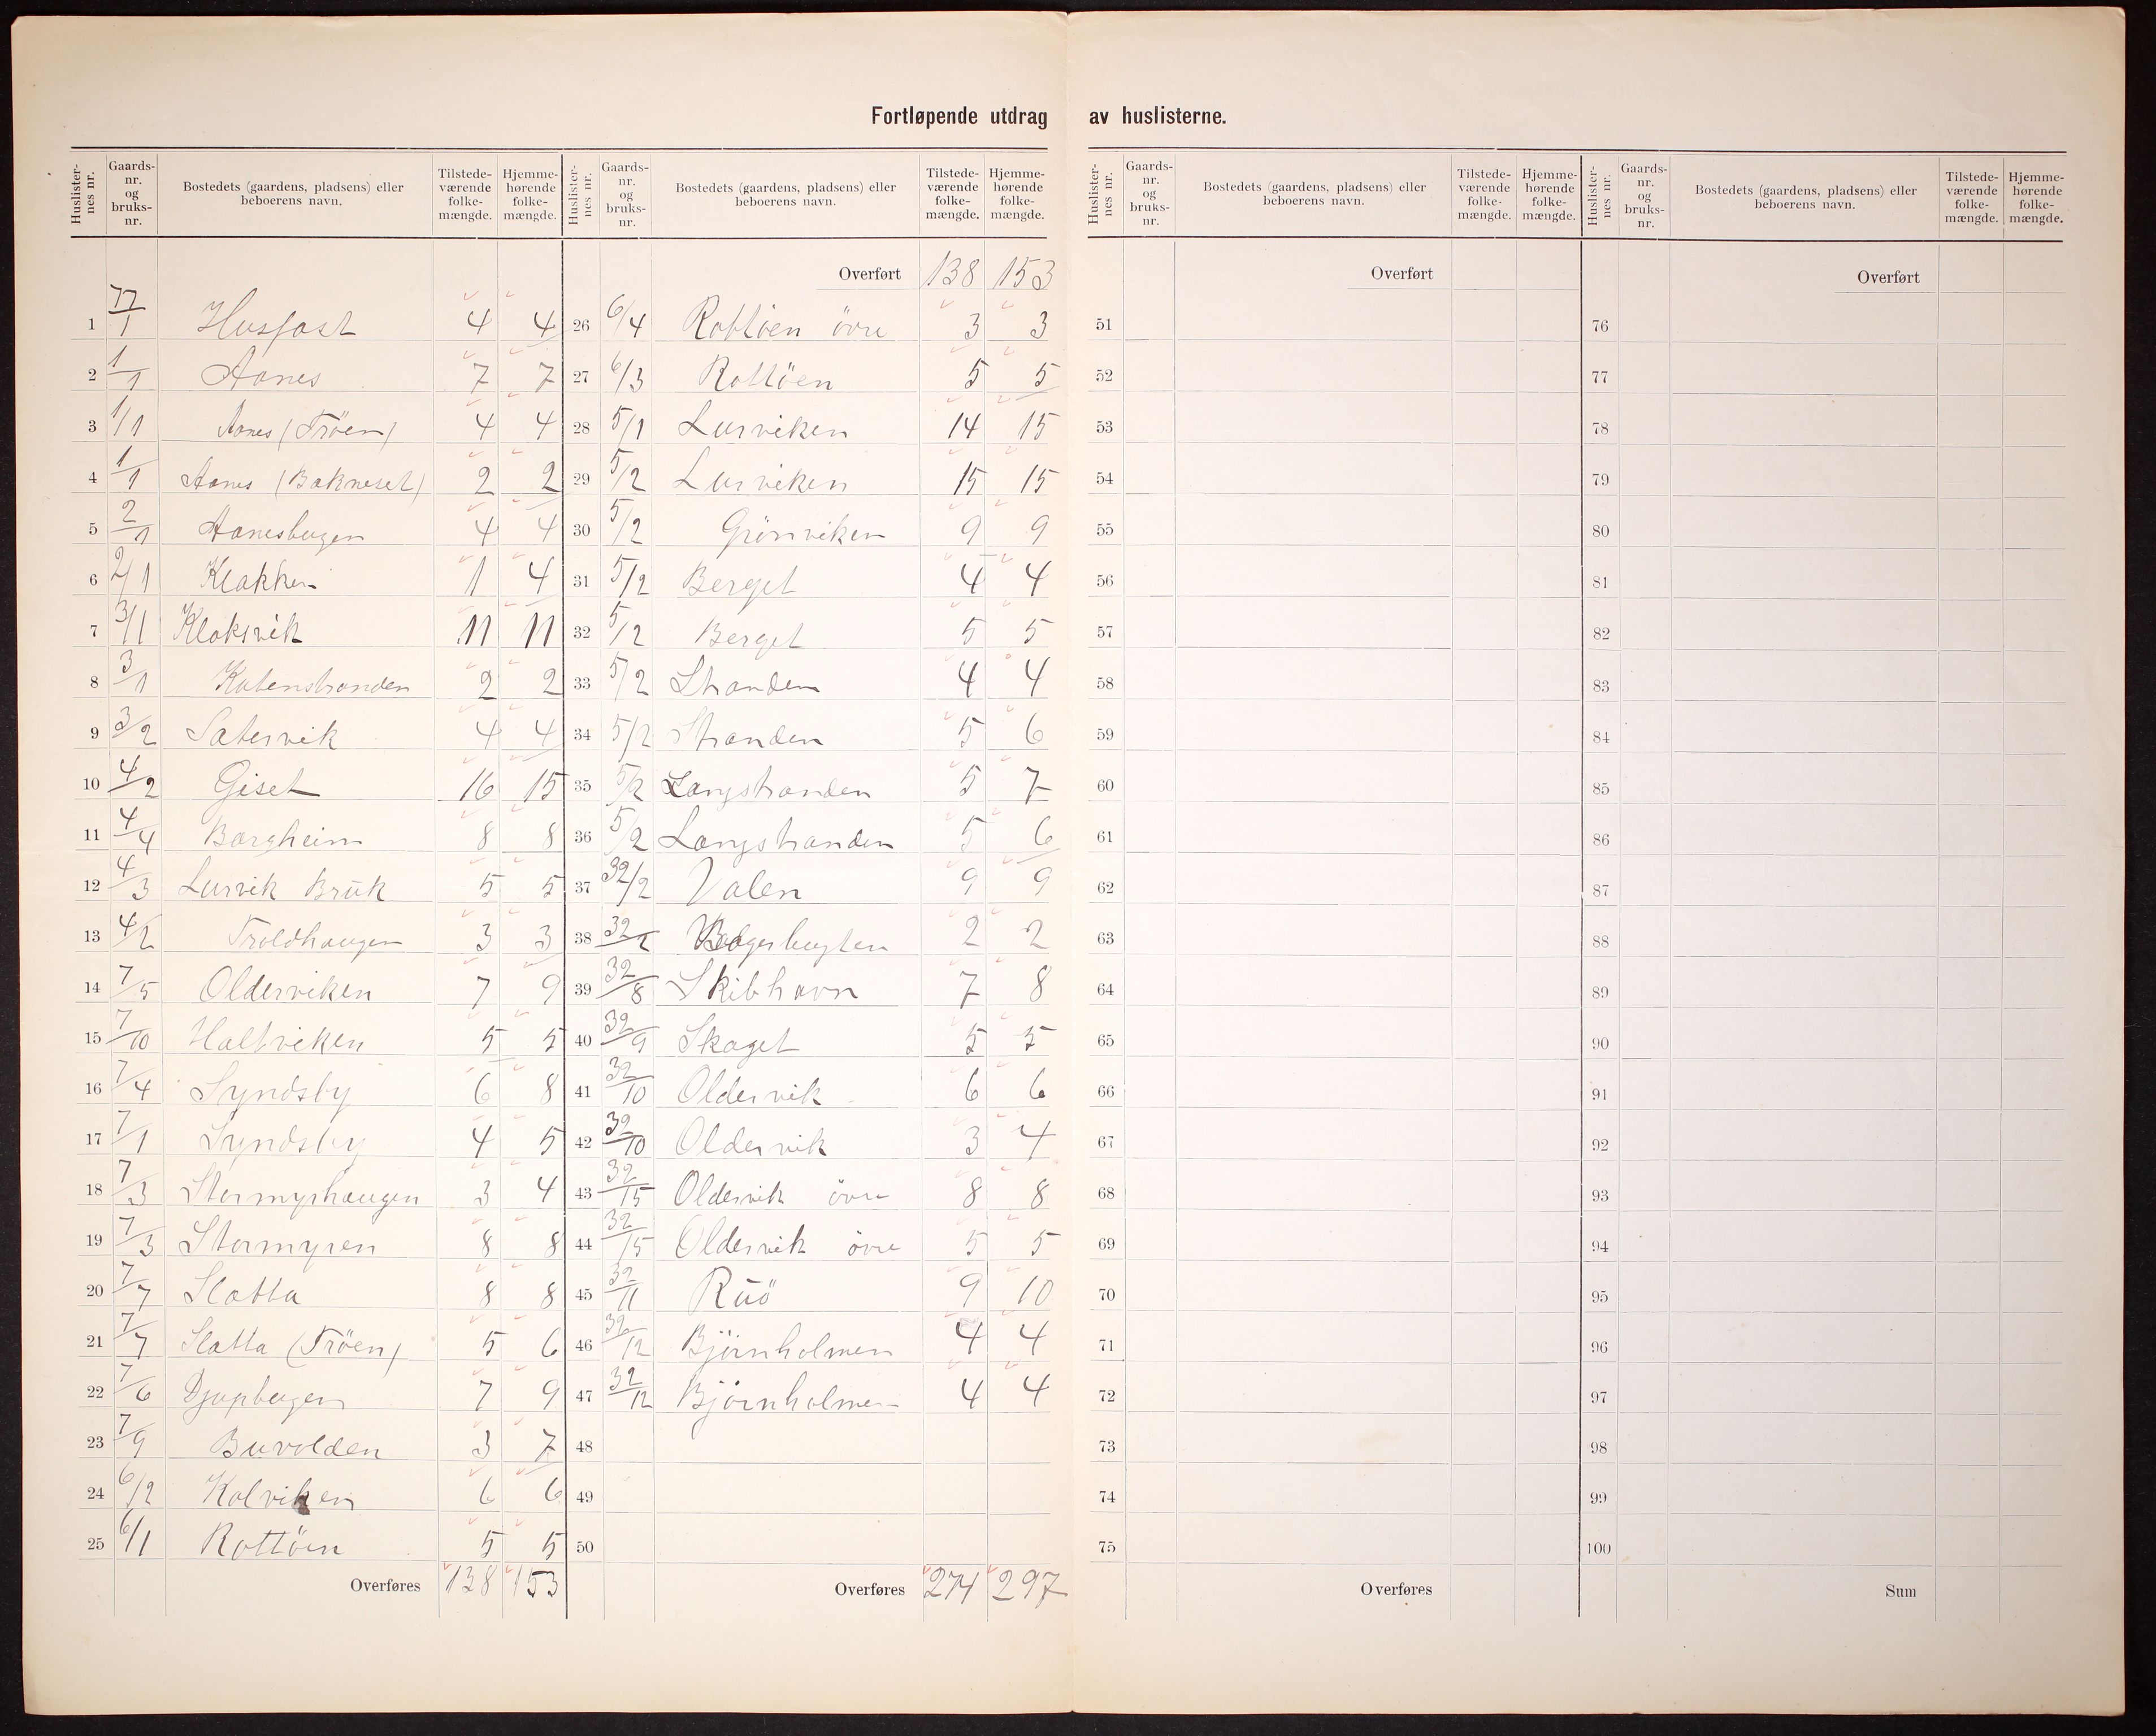 Fortløpende utdrag av huslisterne.
Huslister-nes nr. | Gaards-nr. og bruks-nr. | Bostedets (gaardens, pladsens) eller beboerens navn. | Tilstede-værende folke-mængde. | Hjemme-hørende folke-mængde.
1 77/1 Husfast 4 4
2 1/1 Aanes 7 7
3 1/1 Aanes (Tröen) 4 4
4 1/1 Aanes (Bakneset) 2 2
5 2/1 Aanesbugen 4 4
6 2/1 Klakken 1 4
7 3/1 Klaksvik 11 11
8 3/1 Katenstranden 2 2
9 3/2 Satervik 4 4
10 4/2 Giset 16 15
11 4/4 Bargheim 8 8
12 4/3 Lurvik Bruk 5 5
13 4/2 Troldhaugen 3 3
14 7/5 Olderviken 7 9
15 7/10 Haltviken 5 5
16 7/4 Syndsby 6 8
17 7/1 Syndsby 4 5
18 7/3 Stormyrhaugen 3 4
19 7/3 Stormyren 8 8
20 7/7 Slatta 8 8
21 7/7 Slatta (Tröen) 5 6
22 7/6 Djupbugen 7 9
23 7/9 Buvolden 3 7
24 6/2 Kolviken 6 6
25 6/1 Rottöen 5 5
Overføres 138 153
Huslister-nes nr. | Gaards-nr. og bruks-nr. | Bostedets (gaardens, pladsens) eller beboerens navn. | Tilstede-værende folke-mængde. | Hjemme-hørende folke-mængde.
Overført 138 153
26 6/4 Rottöen övre 3 3
27 6/3 Rottöen 5 5
28 5/1 Lurviken 14 15
29 5/2 Lurviken 15 15
30 5/2 Grönviken 9 9
31 5/2 Berget 4 4
32 5/2 Berget 5 5
33 5/2 Stranden 4 4
34 5/2 Stranden 5 6
35 5/2 Langstranden 5 7
36 5/2 Langstranden 5 6
37 32/2 Valen 9 9
38 32/2 2 2
39 32/8 Skibhavn 7 8
40 32/9 Skaget 5 5
41 32/10 Oldervik 6 6
42 32/10 Oldervik 3 4
43 32/15 Oldervik övre 8 8
44 32/15 Oldervik övre 5 5
45 32/11 Ruö 9 10
46 32/12 Björnholmen 4 4
47 32/12 Björnholmen 4 4
48
49
50
Overføres 274 297
Huslister-nes nr. | Gaards-nr. og bruks-nr. | Bostedets (gaardens, pladsens) eller beboerens navn. | Tilstede-værende folke-mængde. | Hjemme-hørende folke-mængde.
Overført
51
52
53
54
55
56
57
58
59
60
61
62
63
64
65
66
67
68
69
70
71
72
73
74
75
Overføres
Huslister-nes nr. | Gaards-nr. og bruks-nr. | Bostedets (gaardens, pladsens) eller beboerens navn. | Tilstede-værende folke-mængde. | Hjemme-hørende folke-mængde.
Overført
76
77
78
79
80
81
82
83
84
85
86
87
88
89
90
91
92
93
94
95
96
97
98
99
100
Sum